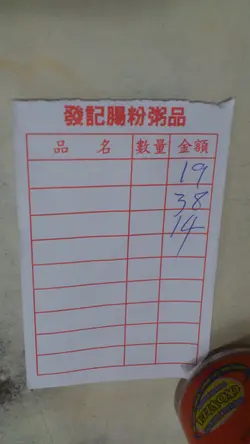 發記腸粉粥品
品 名 數量 金額
19
38
14